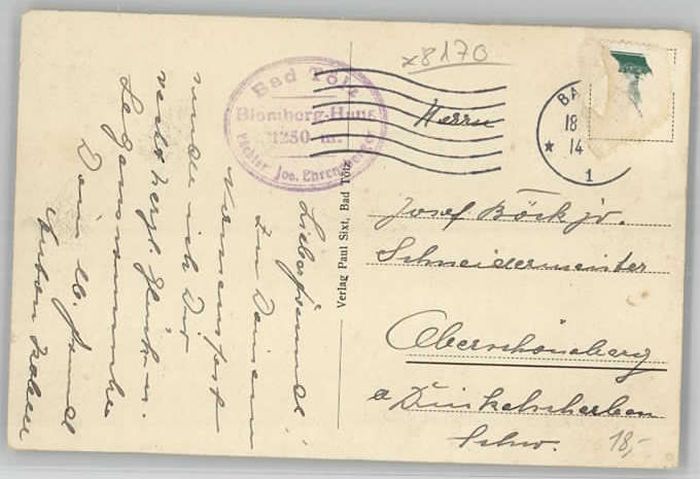 x8170
Bad Tölz
Blomberg-Haus
1250 m.
Pächter Jos. Ehrensberger
BA
18
14
1
Herrn
Josef Böck jr.
Schneidermeister
Oberschöneberg
a Dinkelscherben
Schw.
18,-
Verlag Paul Sixt, Bad Tölz
Lieber Freund!
Zu Deinem
Namensfest
sende ich Dir
recht herzl. Glück u.
Segenswünsche
Dein lb. Freund